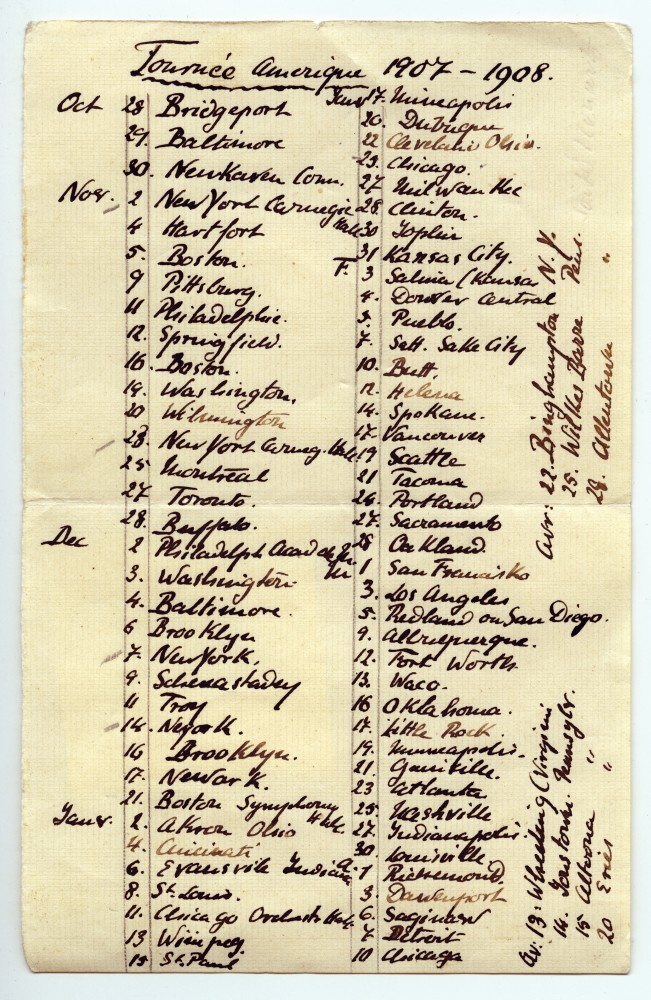 Tournée Amerique 1907 – 1908.
Oct 28 Bridgeport
29. Baltimore
30. NewHaven Conn.
Nov. 2 New York Carnegie Hall
4 Hartfort
5. Boston.
9 Pittsburg.
11 Philadelphie.
12. Springfield.
16. Boston.
19. Washington.
20 Wilmington
23. New York Carneg. Hall
25 Montreal
27 Toronto.
28. Buffalo.
Dec 2 Philadelph Acad
3. Washington
4. Baltimore.
6 Brooklyn
7. New York.
9. Schenastadey
11 Troy
14. Neyork.
16 Brooklyn.
17. Newark.
21. Boston Symphony Hall
Janv. 2. Akron Ohio
4. Cincinati
6. Evansville Indiana
8. St. Louis.
11. Chicago Orchestr Hall
13 Winipeg
15 St. Paul
Janv 17. Minneapolis
20. Dubuque
22 Cleveland Ohio.
23. Chicago.
27 Milwaukee
28. Clinton.
30 Joplin
31 Kansas City.
F. 3 Salina (Kansas
4. Denver Central
5. Pueblo.
7. Salt. Lake City
10. Butt
12. Helena
14. Spokane.
17. Vancouver
19 Seattle
21 Tacoma
26. Portland
27. Sacramento
28 Oakland.
M 1 San Francisko
3. Los Angeles
5. Redland on San Diego.
9. Albuquerque.
12. Fort Worth
13. Waco.
16 Oklahoma.
17. Little Rock.
19. Minneapolis.
21. Gainville.
23 Atlanta
25. Nashville
27. Indianapolis.
30. Louisville.
A. 1 Richemond
3. Davenport
6. Saginaw
7 Detroit
10 Chicago
Av: 13. Wheeling (Virgini
14. Jonstown. Pennsylv.
15 Altoona "
20 Eries "
Avr: 22. Binghampton N.Y.
25. Wilkes Barre Pens.
28. Allentown "